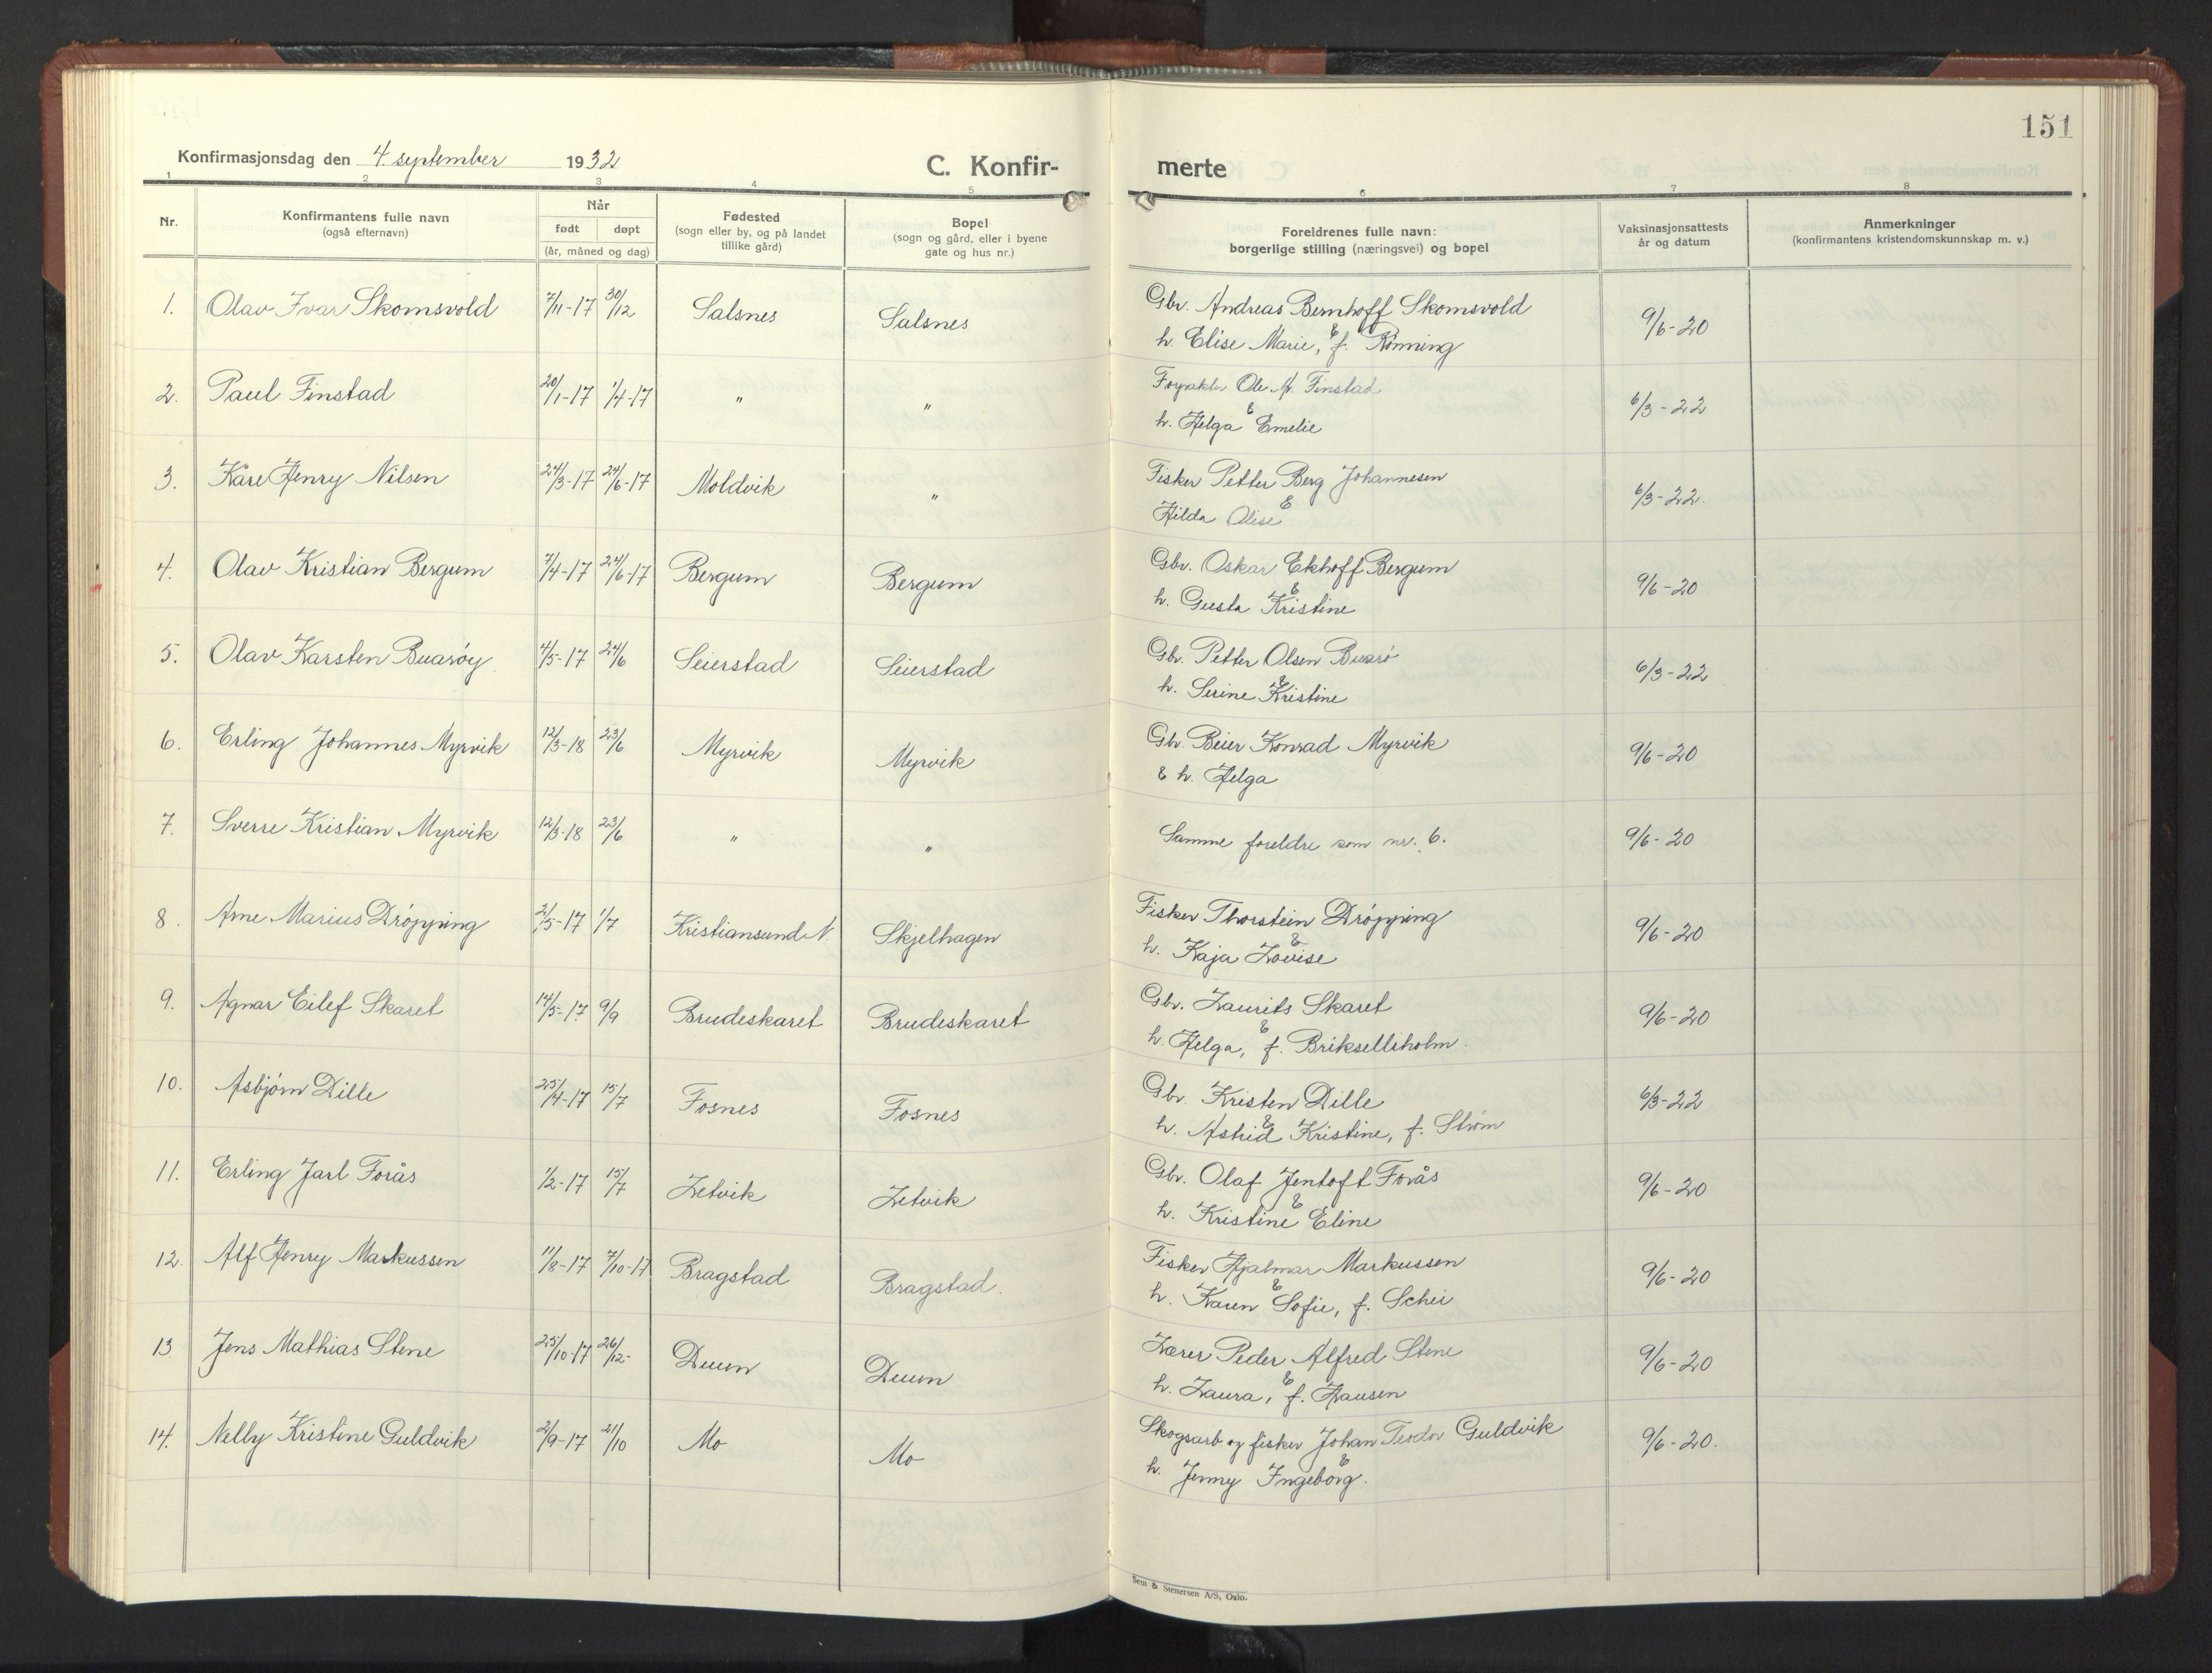 151
Konfirmasjonsdag den 4. september 1932
C. Konfir-
merte
1 2 3 4 5 6 7 8
Nr.
Konfirmantens fulle navn
(også efternavn)
Når
født døpt
(år, måned og dag)
Fødested
(sogn eller by, og på landet
tillike gård)
Bopel
(sogn og gård, eller i byene
gate og hus nr.)
Foreldrenes fulle navn:
borgerlige stilling (næringsvei) og bopel
Vaksinasjonsattests
år og datum
Anmerkninger
(konfirmantens kristendomskunnskap m. v.)
1. Olav Ivar Skomsvold 7/11-17 30/12 Salsnes Salsnes Gbr. Andreas Bernhoff Skomsvold 9/6-20
& h. Elise Marie, f. Rønning
2. Paul Finstad 20/1-17 1/4-17 " " Ole A. Finstad 6/3-22
& h. Helga Emelie
3. Kåre Henry Nilsen 24/3-17 24/6-17 Moldvik " Fisker Petter Berg Johannesen 6/3-22.
& Hilda Olise
4. Olav Kristian Bergum 7/4-17 24/6-17 Bergum Bergum Gbr. Oskar Ekhoff Bergum 9/6-20
& h. Gusta Kristine
5. Olav Karsten Buarøy 4/5-17 24/6 Seierstad Seierstad Gbr. Petter Olsen Buarø 6/3-22
& h. Serine Kristine
6. Erling Johannes Myrvik 12/3-18 23/6 Myrvik Myrvik Gbr. Beier Konrad Myrvik 9/6-20
& h. Helga
7. Sverre Kristian Myrvik 12/3-18 23/6 " " Samme foreldre som nr. 6. 9/6-20
8. Arne Marius Drøpping 2/5-17 1/7 Kristiansund N. Skjelhagen Fisker Thorstein Drøpping 9/6-20
& h. Kaja Lovise
9. Agnar Eilef Skaret 14/5-17 9/9 Brudeskaret Brudeskaret Gbr. Laurits Skaret 9/6-20
& h. Helga, f. Brikselliholm.
10. Asbjørn Dille 25/4-17 15/7 Fosnes Fosnes Gbr. Kristen Dille 6/3-22
& h. Astrid Kristine, f. Strøm
11. Erling Jarl Forås 1/2-17 15/7 Letvik Letvik Gbr. Olaf Jentoft Forås 9/6-20
& h. Kristine Eline
12. Alf Henry Markussen 11/8-17 7/10-17 Bragstad Bragstad. Fisker Hjalmar Markussen 9/6-20
& h. Karen Sofie, f. Schei
13 Jens Mathias Stene 25/10-17 26/12- Duun Duun Lærer Peder Alfred Stene 9/6-20
& h. Laura, f. Hansen
14. Nelly Kristine Guldvik 2/9-17 21/10 Mo Mo Skogsarb og fisker Johan Teodor Guldvik 9/6-20.
& h. Jenny Ingeborg.
Sem & Stenersen A/S, Oslo.